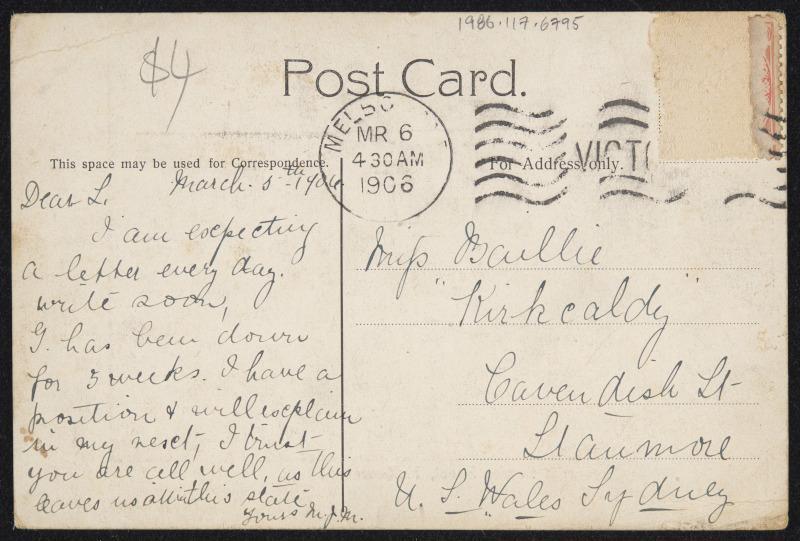 1986.117.6795
$4
Post Card.
MELBO
MR 6
4 30 AM
1906
VICTO
This space may be used for Correspondence.
For Address only.
March. 5th 1906
Dear L.
I am expecting
a letter every day.
write soon,
G. has been down
for 3 weeks. I have a
position & will explain
in my next, I trust
you are all well, as this
leaves us all in this state
Yours M.J.M.
Miss Baillie
"Kirkcaldy"
Cavendish St
Stanmore
N. S. Wales Sydney